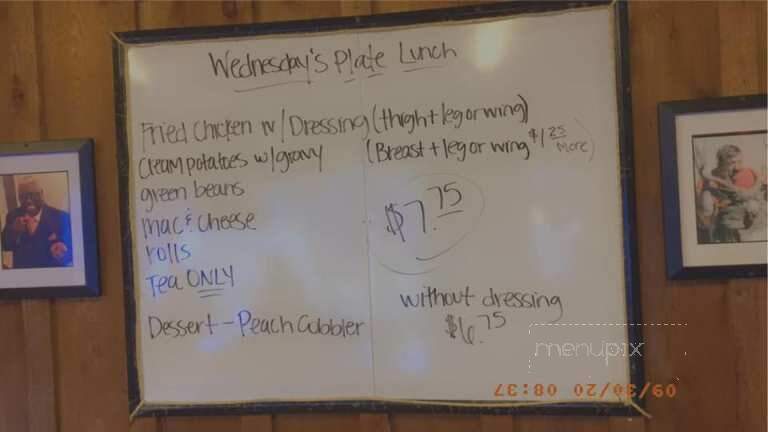 Wednesday's Plate Lunch
Fried Chicken w/Dressing (thigh + leg or wing)
Cream potatoes w/gravy (Breast + leg or wing $1.25 more)
green beans
mac & cheese
$7.75
rolls
Tea ONLY
without dressing
$6.75
Dessert - Peach Cobbler
menupix
09/30/20 08:37